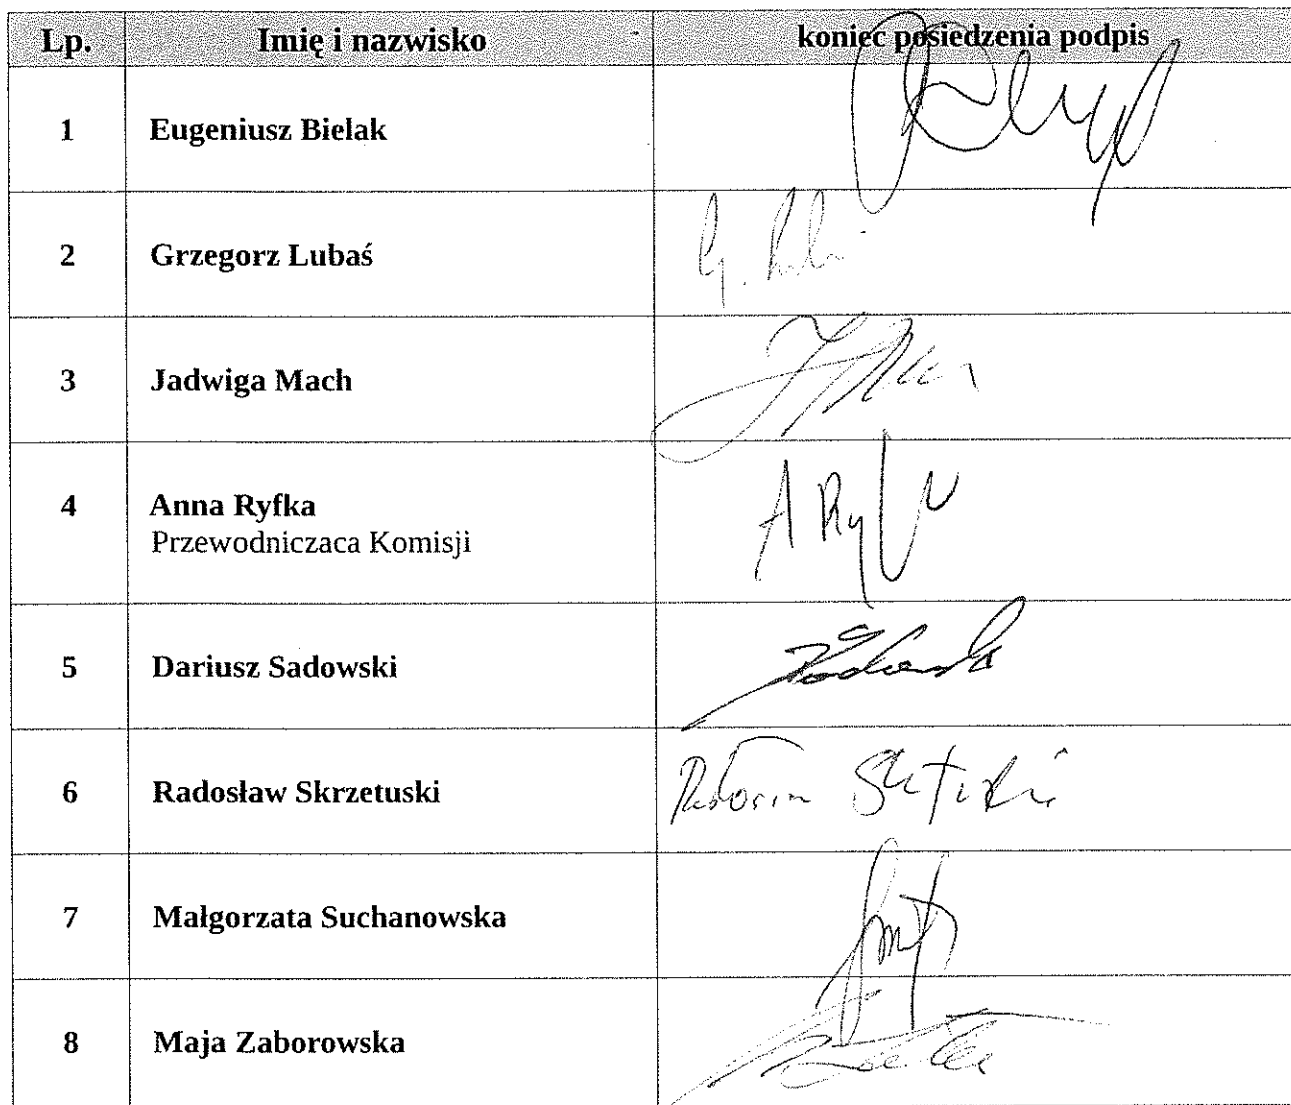 Lp. Imię i nazwisko koniec posiedzenia podpis
1 Eugeniusz Bielak
2 Grzegorz Lubaś
3 Jadwiga Mach
4 Anna Ryfka
Przewodniczaca Komisji
5 Dariusz Sadowski
6 Radosław Skrzetuski
7 Małgorzata Suchanowska
8 Maja Zaborowska